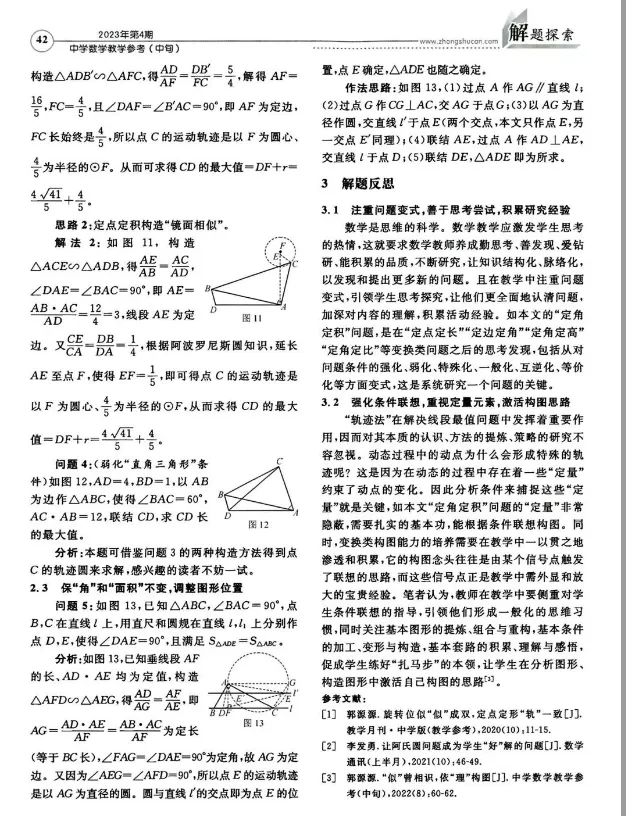 42
2023年第4期
中学数学教学参考(中旬)
www.zhongshucan.com
解题探索
构造△ADB′∽△AFC,得AD/AF=DB′/FC=5/4,解得 AF=
16/5,FC=4/5,且∠DAF=∠B′AC=90°,即 AF 为定边,
FC 长始终是4/5,所以点 C 的运动轨迹是以 F 为圆心、
4/5为半径的⊙F。从而可求得 CD 的最大值=DF+r=
4√41/5+4/5。
思路 2:定点定积构造“镜面相似”。
解法 2:如图 11,构造
△ACE∽△ADB,得AE/AB=AC/AD,
∠DAE=∠BAC=90°,即 AE=
AB·AC/AD=12/4=3,线段 AE 为定
F
E
C
B
D
A
图 11
边。又CE/CA=DB/DA=1/4,根据阿波罗尼斯圆知识,延长
AE 至点 F,使得 EF=1/5,即可得点 C 的运动轨迹是
以 F 为圆心、4/5为半径的⊙F,从而求得 CD 的最大
值=DF+r=4√41/5+4/5。
问题 4:(弱化“直角三角形”条
件)如图 12,AD=4,BD=1,以 AB
为边作△ABC,使得∠BAC=60°,
AC·AB=12,联结 CD,求 CD 长
的最大值。
C
B
D
A
图 12
分析:本题可借鉴问题 3 的两种构造方法得到点
C 的轨迹圆来求解,感兴趣的读者不妨一试。
2.3 保“角”和“面积”不变,调整图形位置
问题 5:如图 13,已知△ABC,∠BAC=90°,点
B,C 在直线 l 上,用直尺和圆规在直线 l,l₁ 上分别作
点 D,E,使得∠DAE=90°,且满足 S△ADE=S△ABC。
分析:如图 13,已知垂线段 AF
的长、AD·AE 均为定值,构造
△AFD∽△AEG,得AD/AG=AF/AE,即
AG=AD·AE/AF=AB·AC/AF为定长
A
G
E′
E
l′
B
D
F
C
l
图 13
(等于 BC 长),∠FAG=∠DAE=90°为定角,故 AG 为定
边。又因为∠AEG=∠AFD=90°,所以点 E 的运动轨迹
是以 AG 为直径的圆。圆与直线 l′的交点即为点 E 的位
置,点 E 确定,△ADE 也随之确定。
作法思路:如图 13,(1)过点 A 作 AG∥直线 l;
(2)过点 G 作 CG⊥AC,交 AG 于点 G;(3)以 AG 为直
径作圆,交直线 l′于点 E(两个交点,本文只作点 E,另
一交点 E′同理);(4)联结 AE,过点 A 作 AD⊥AE,
交直线 l 于点 D;(5)联结 DE,△ADE 即为所求。
3 解题反思
3.1 注重问题变式,善于思考尝试,积累研究经验
数学是思维的科学。数学教学应激发学生思考
的热情,这就要求数学教师养成勤思考、善发现、爱钻
研、能积累的品质,不断研究,让知识结构化、脉络化,
以发现和提出更多新的问题。且在教学中注重问题
变式,引领学生思考探究,让他们更全面地认清问题,
加深对内容的理解,积累活动经验。如本文的“定角
定积”问题,是在“定点定长”“定边定角”“定角定高”
“定角定比”等变换类问题之后的思考发现,包括从对
问题条件的强化、弱化、特殊化、一般化、互逆化、等价
化等方面变式,这是系统研究一个问题的关键。
3.2 强化条件联想,重视定量元素,激活构图思路
“轨迹法”在解决线段最值问题中发挥着重要作
用,因而对其本质的认识、方法的提炼、策略的研究不
容忽视。动态过程中的动点为什么会形成特殊的轨
迹呢?这是因为在动态的过程中存在着一些“定量”
约束了动点的变化。因此分析条件来捕捉这些“定
量”就是关键,如本文“定角定积”问题的“定量”非常
隐蔽,需要扎实的基本功,能根据条件联想构图。同
时,变换类构图能力的培养需要在教学中一以贯之地
渗透和积累,它的构图念头往往是由某个信号点触发
了联想的思路,而这些信号点正是教学中需外显和放
大的宝贵经验。笔者认为,教师在教学中要侧重对学
生条件联想的指导,引领他们形成一般化的思维习
惯,同时关注基本图形的提炼、组合与重构,基本条件
的加工、变形与构造,基本套路的积累、理解与感悟,
促成学生练好“扎马步”的本领,让学生在分析图形、
构造图形中激活自己构图的思路[3]。
参考文献:
[1] 郭源源. 旋转位似“似”成双,定点定形“轨”一致[J].
教学月刊·中学版(教学参考),2020(10):11-15.
[2] 李发勇. 让阿氏圆问题成为学生“好”解的问题[J]. 数学
通讯(上半月),2021(10):46-49.
[3] 郭源源. “似”曾相识,依“理”构图[J]. 中学数学教学参
考(中旬),2022(8):60-62.